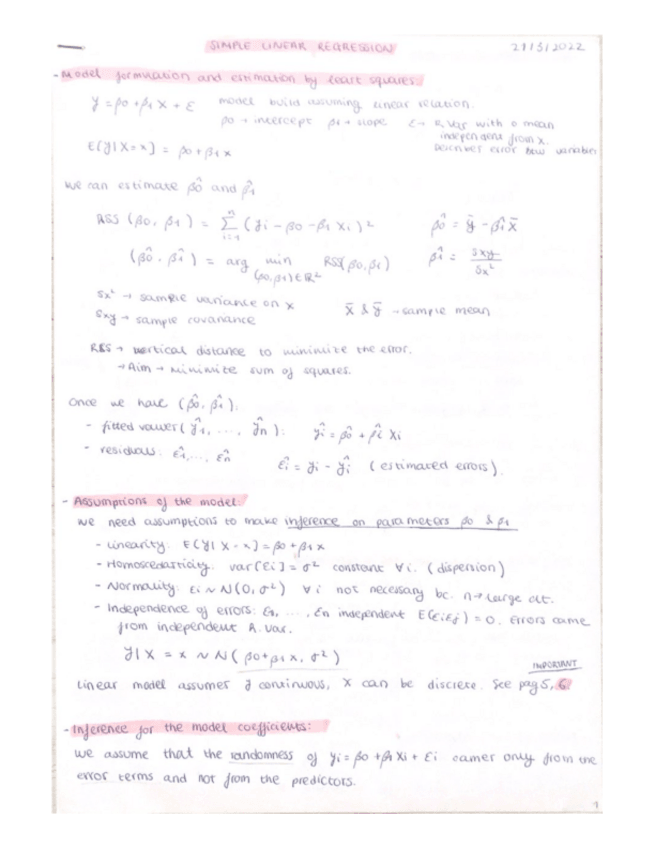 SIMPLE LINEAR REGRESSION 21/3/2022
- Model formulation and estimation by least squares.
y = β0 + β1 X + ε model build assuming linear relation.
β0 → intercept β1 → slope ε → R. Var with 0 mean
independent from x.
Describes error btw variables
E[y|X=x] = β0 + β1 x
We can estimate β̂0 and β̂1
RSS (β0, β1) = Σ_{i=1}^{n} (yi - β0 - β1 xi)² β̂0 = ȳ - β̂1 x̄
(β̂0, β̂1) = arg min_{(β0,β1)∈ℝ²} RSS(β0,β1) β̂1 = sxy / sx²
sx² → sample variance on x
sxy → sample covariance x̄ & ȳ → sample mean
RSS → vertical distance to minimize the error.
→ Aim → minimize sum of squares.
Once we have (β̂0, β̂1):
- fitted values (ŷ1, ..., ŷn): ŷi = β̂0 + β̂1 xi
- residuals: ε̂1, ..., ε̂n
ε̂i = yi - ŷi (estimated errors).
- Assumptions of the model:
We need assumptions to make inference on parameters β0 & β1
- Linearity: E[y|X=x] = β0 + β1 x
- Homoscedasticity: var[εi] = σ² constant ∀i. (dispersion)
- Normality: εi ~ N(0, σ²) ∀i not necessary bc. n → large
- Independence of errors: ε1, ..., εn independent E(εiεj) = 0. Errors came
from independent R. Var.
y|X = x ~ N(β0 + β1 x, σ²)
IMPORTANT
Linear model assumes y continuous, X can be discrete. See pag 5, 6
- Inference for the model coefficients:
We assume that the randomness of yi = β0 + β1 xi + εi comes only from the
error terms and not from the predictors.
1